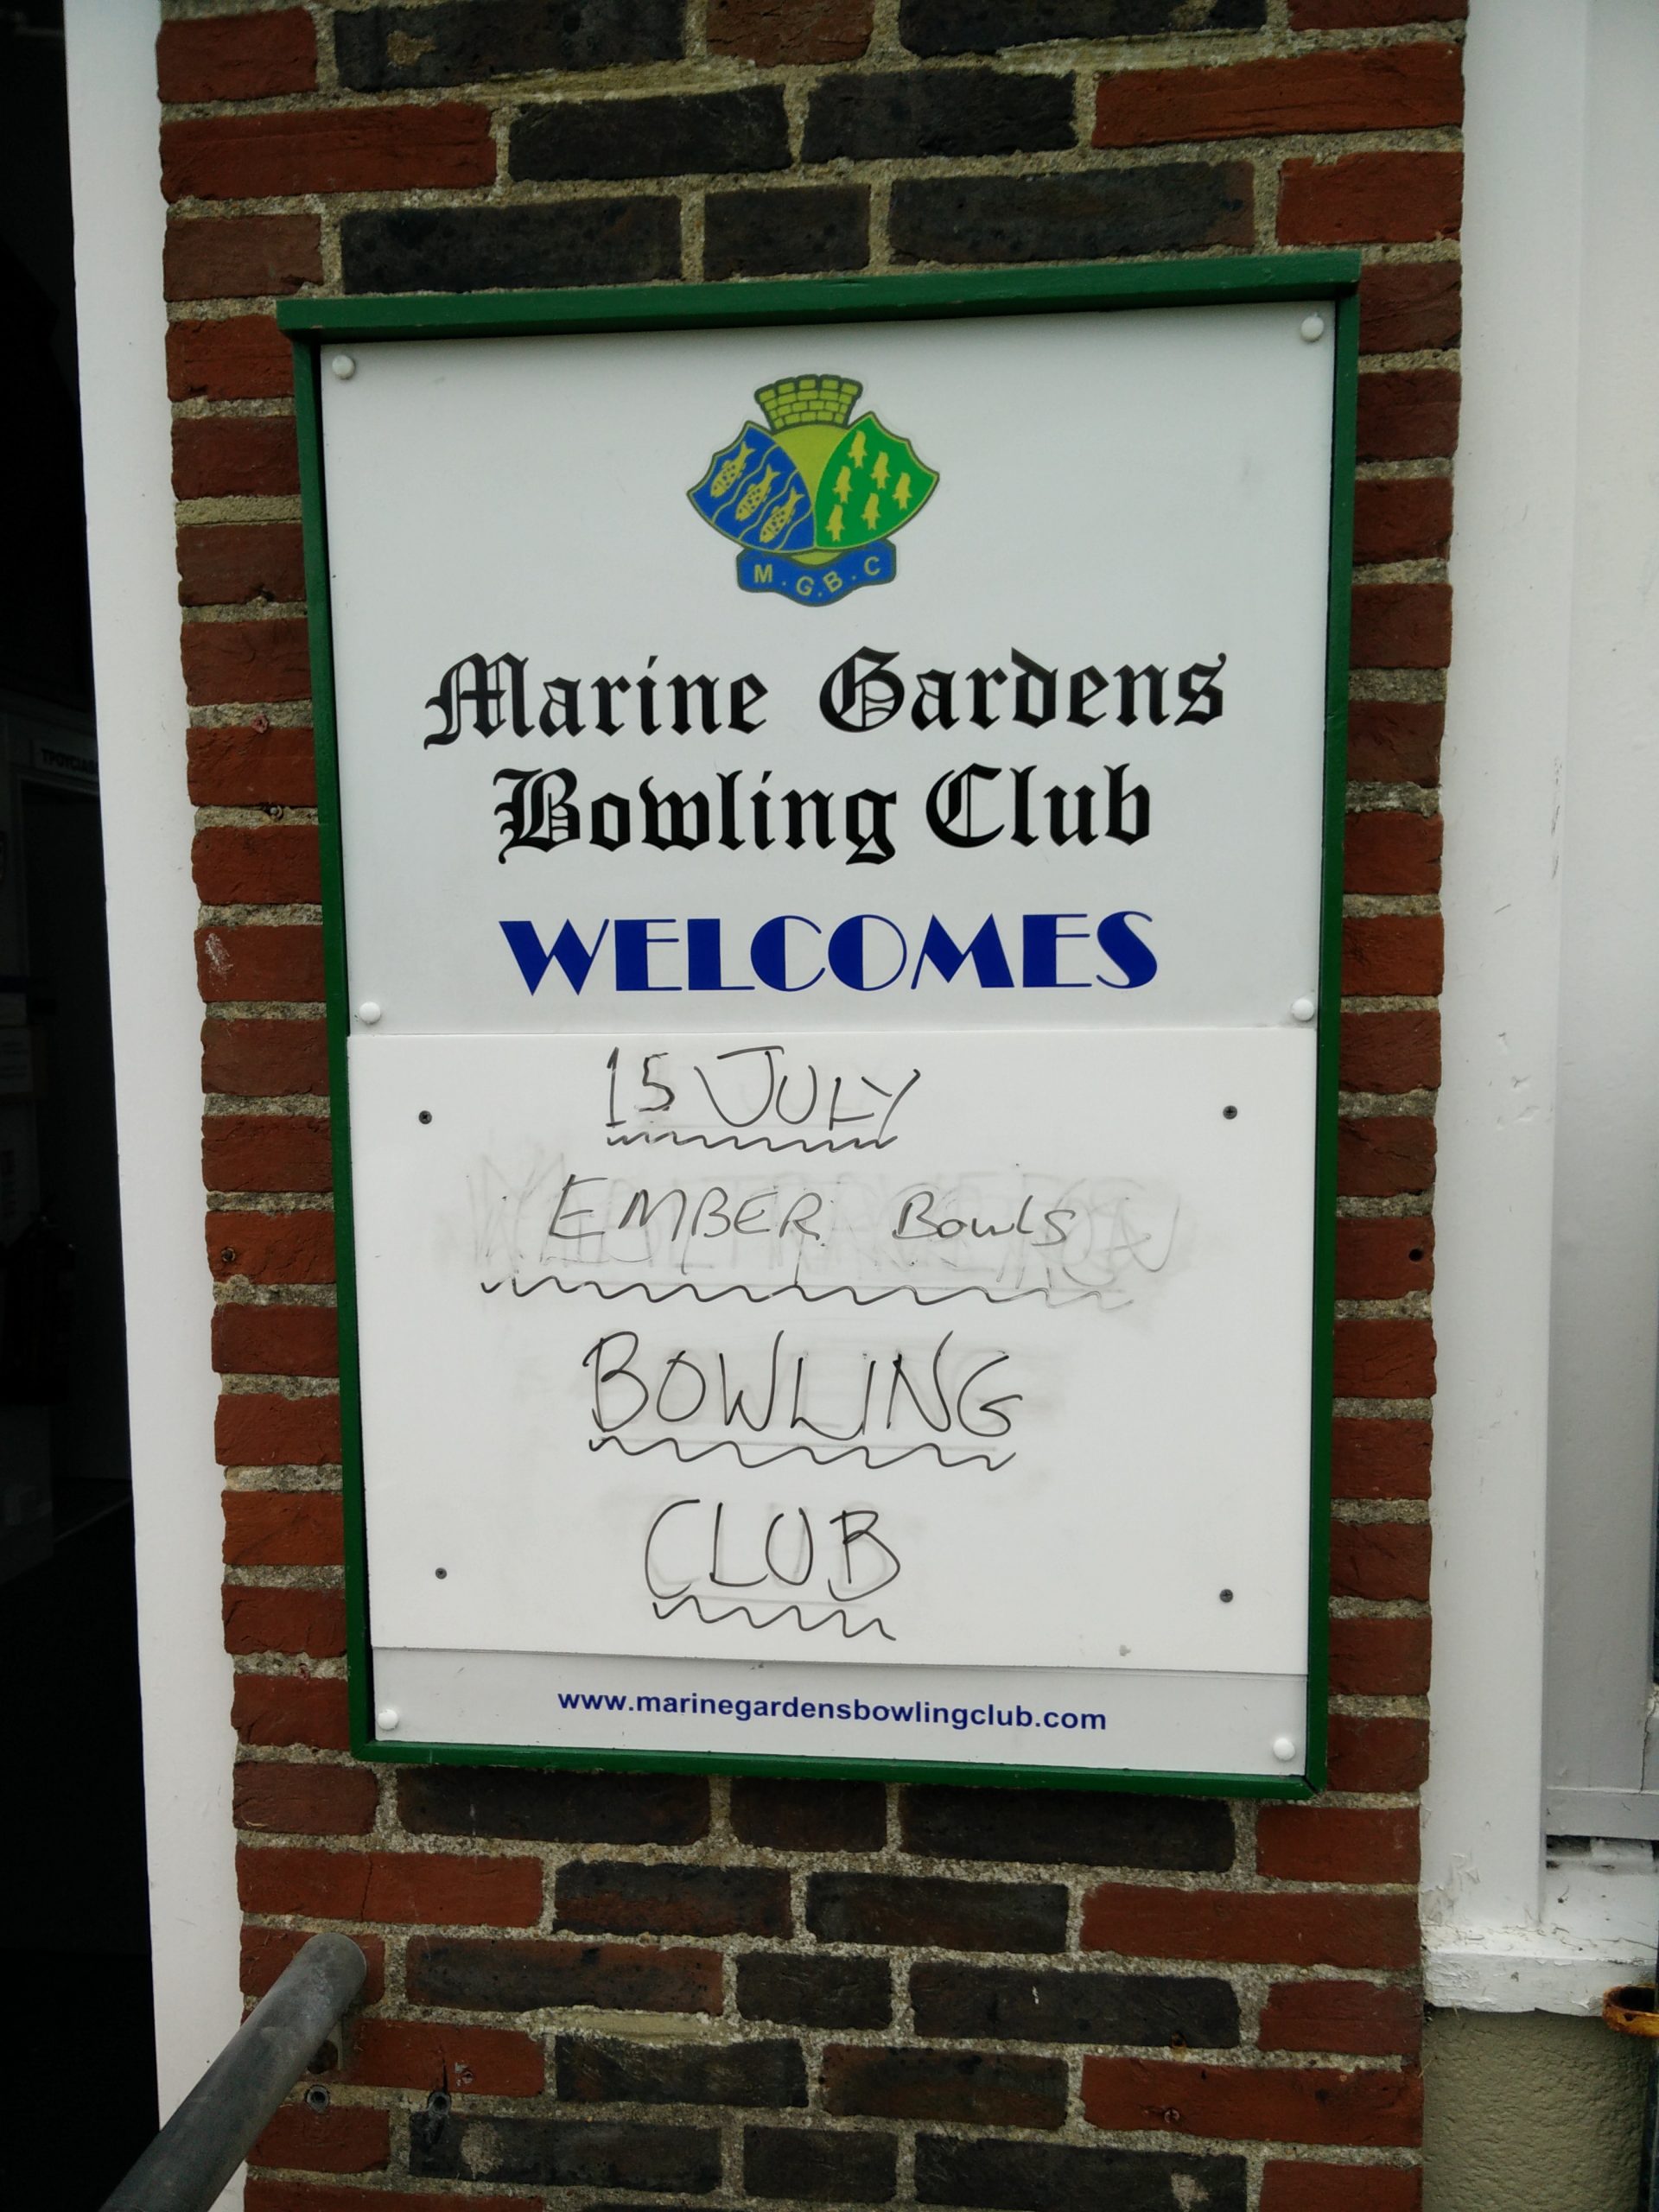 M.G.B.C
Marine Gardens
Bowling Club
WELCOMES
15 JULY
EMBER Bowls
BOWLING
CLUB
www.marinegardensbowlingclub.com